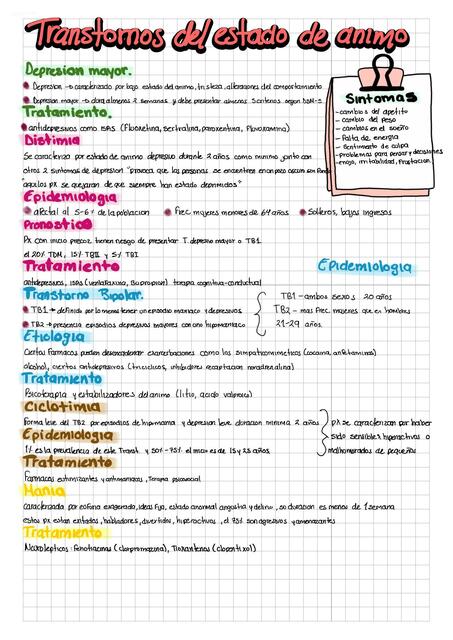 Transtornos del estado de animo
Depresion mayor.
Depresion → caracterizado por bajo estado del animo, tristeza, alteraciones del comportamiento
Depresion mayor → dura almenos 2 semanas y debe presentar almenos 5 criterios segun DSM-5
Tratamiento.
antidepresivos como ISRS (Fluoxetina, sertralina, paroxentina, Fluvoxamina)
Sintomas
- cambios del apetito
- cambio del peso
- cambios en el sueño
- Falta de energia
- Sentimiento de culpa
- problemas para pensar y decisiones
- enojo, irritabilidad, frustacion
Distimia
Se caracteriza por estado de animo depresivo durante 2 años como minimo junto con
otros 2 sintomas de depresion "provoca que las personas se encuentren en un pozo oscuro sin fondo
aquellos px se quejaran de que siempre han estado deprimidos"
Epidemiologia
afecta al 5-6% de la poblacion
Frec mujeres menores de 64 años
Solteros, bajos ingresos
Pronostico
Px con inicio precoz tienen riesgo de presentar T. depresivo mayor o TB1.
el 20% TDM, 15% TBII y 5% TBI
Tratamiento
antidepresivos, ISRS (venlafaxina, Bupropion) terapia cognitiva-conductual
Transtorno Bipolar.
TB1 → definido por lo menos tener un episodio maniaco y depresivos
TB2 → presencia episodios depresivos mayores con uno hipomaniaco
Epidemiologia
TB1 - ambos sexos 20 años
TB2 - mas frec mujeres que en hombres
21-29 años.
Etiologia
Ciertos Farmacos pueden desencadenar exarcerbaciones como los simpatricomimeticos (cocaina, anfetaminas)
alcohol, ciertos antidepresivos (triciclicos, inhibidores recaptacion noradrenalina)
Tratamiento
Psicoterapia y estabilizadores del animo (litio, acido valproico)
Ciclotimia
Forma leve del TB2 por episodios de hipimania y depresion leve duracion minima 2 años
Epidemiologia
1% es la prevalencia de este Transt. y 50%-75% el inicio es de 15 y 25 años
px se caracterizan por haber
sido sensibles hiperactivos o
malhumorados de pequeños
Tratamiento
Farmacos estimizantes y antimaniacos, Terapia psicosocial
Mania
caracterizado por euforia exagerada, ideas fija, estado anormal angustia y delirio, su duracion es menos de 1 semana
estos px estan exitados, habladores, divertidos, hiperactivos, el 75% son agresivos y amenazantes
Tratamiento
Neurolepticos: Fenotiacinas (clorpromazina), Tioxantenos (clopentixol)